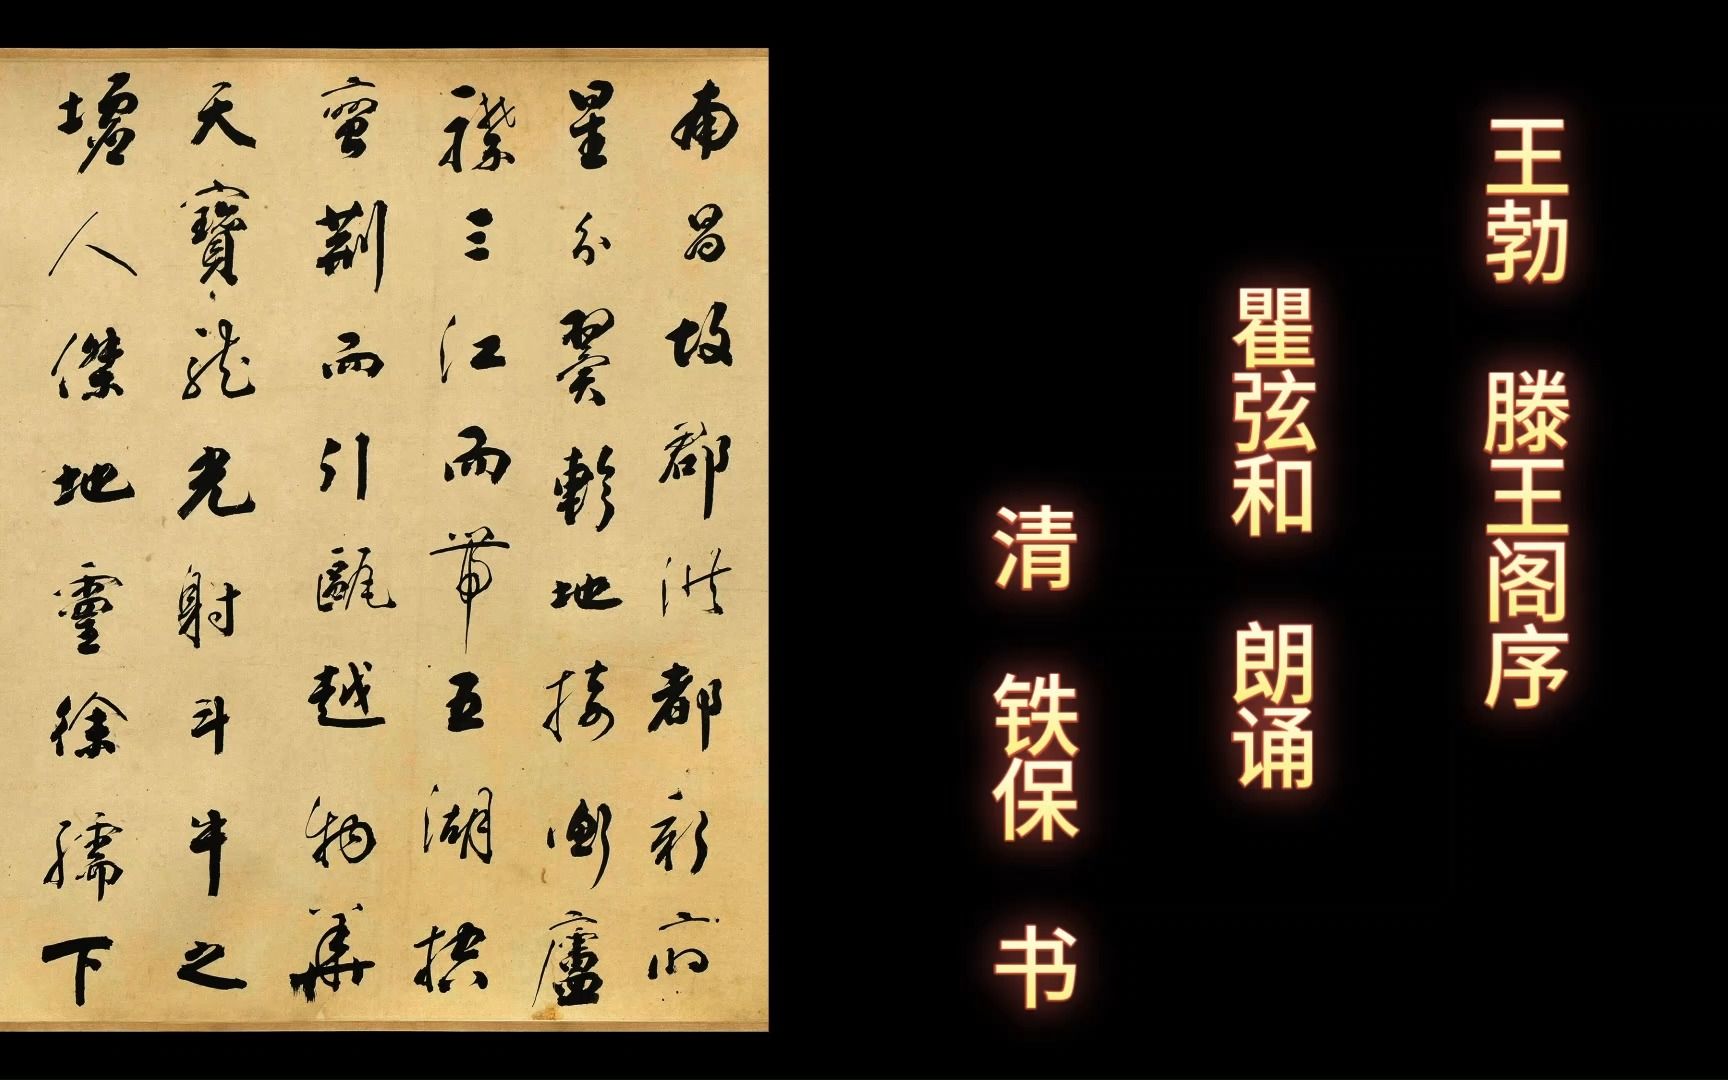 王勃 滕王阁序
瞿弦和 朗诵
清 铁保 书
南昌故郡洪都新府
星分翼轸地接衡庐
襟三江而带五湖控
蛮荆而引瓯越物华
天宝龙光射斗牛之
墟人杰地灵徐孺下